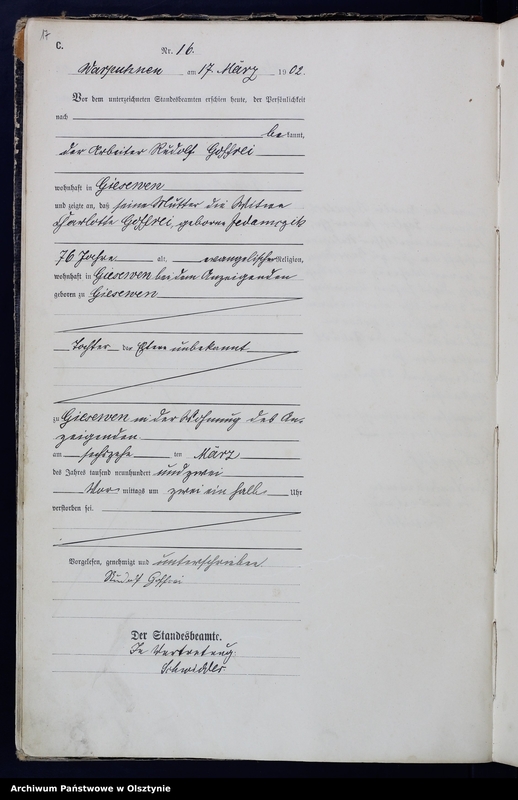 17
C.
Nr. 16.
Warpuhnen am 17 März 1902.
Vor dem unterzeichneten Standesbeamten erschien heute, der Persönlichkeit
nach
be kannt,
der Arbeiter Rudolf
wohnhaft in Giesewen
und zeigte an, daß seine Mutter die Witwe
Charlotte geborne Jedamczik
76 Jahre alt, evangelischer Religion,
wohnhaft in Giesewen bei dem Anzeigenden
geboren zu Giesewen
Tochter der Eltern unbekannt
zu Giesewen in der Wohnung des An=
zeigenden
am sechszehn ten März
des Jahres tausend neunhundert und zwei
Vor mittags um zwei ein halb Uhr
verstorben sei.
Vorgelesen, genehmigt und unterschrieben
Rudolf
Der Standesbeamte.
In Vertretung
Archiwum Państwowe w Olsztynie